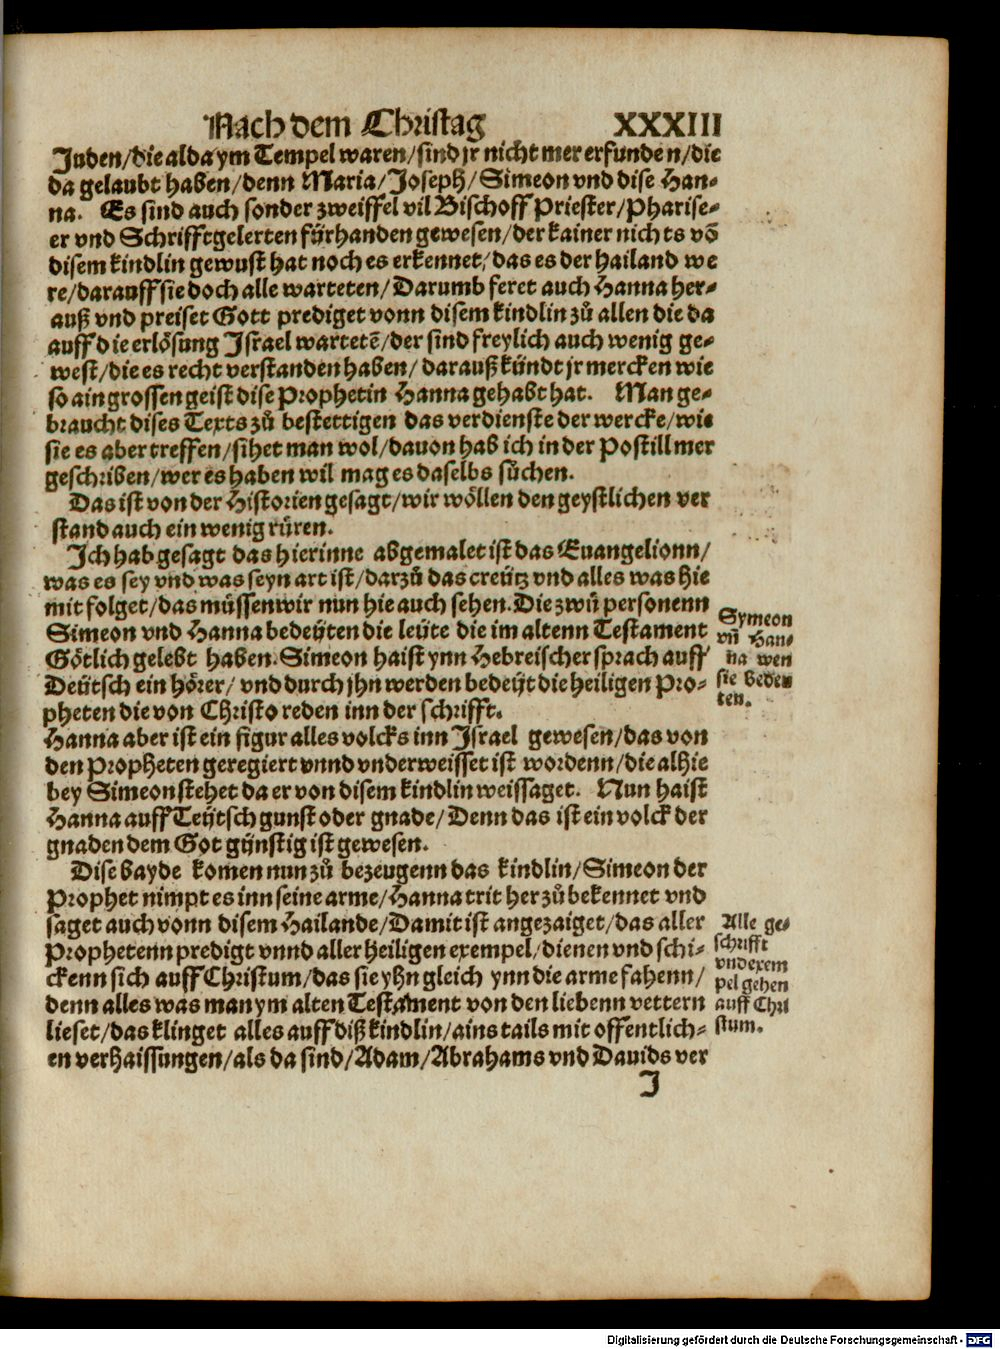 Nach dem Christag XXXIII
Juden/die alda ym Tempel waren/sind jr nicht mer erfunden/die
da gelaubt haben/denn Maria/Joseph/Simeon vnd dise Han-
na. Es sind auch sonder zweiffel vil Bischoff Priester/Pharise-
er vnd Schrifftgelerten fürhanden gewesen/der kainer nichts võ
disem kindlin gewust hat noch es erkennet/das es der hailand we
re/darauff sie doch alle warteten/Darumb feret auch Hanna her-
auß vnd preiset Gott prediget vonn disem kindlin zů allen die da
auff die erlösung Israel wartetẽ/der sind freylich auch wenig ge-
west/die es recht verstanden haben/darauß kündt jr mercken wie
so ain grossen geist dise Prophetin Hanna gehabt hat. Man ge-
braucht dises Texts zů bestettigen das verdienste der wercke/wie
sie es aber treffen/sihet man wol/dauon hab ich in der Postill mer
geschriben/wer es haben wil mag es daselbs sůchen.
Das ist von der Historien gesagt/wir wöllen den geystlichen ver
stand auch ein wenig rüren.
Ich hab gesagt das hierinne abgemalet ist das Euangelionn/
was es sey vnd was seyn art ist/darzů das creütz vnd alles was hie
mit folget/das müssen wir nun hie auch sehen. Die zwů personenn
Simeon vnd Hanna bedeüten die leüte die im altenn Testament
Götlich gelebt haben. Simeon haist ynn Hebreischer sprach auff
Deütsch ein hörer/vnd durch jhn werden bedeüt die heiligen Pro-
pheten die von Christo reden inn der schrifft.
Hanna aber ist ein figur alles volcks inn Israel gewesen/das von
den Propheten geregiert vnnd vnderweisset ist wordenn/die alhie
bey Simeon stehet da er von disem kindlin weissaget. Nun haist
Hanna auff Teütsch gunst oder gnade/Denn das ist ein volck der
gnaden dem Got günstig ist gewesen.
Dise bayde komen nun zů bezeugenn das kindlin/Simeon der
Prophet nimpt es inn seine arme/Hanna trit her zů bekennet vnd
saget auch vonn disem Hailande/Damit ist angezaiget/das aller
Prophetenn predigt vnnd aller heiligen exempel/dienen vnd schi-
ckenn sich auff Christum/das sie yhn gleich ynn die arme fahenn/
denn alles was man ym alten Testament von den liebenn vettern
lieset/das klinget alles auff diß kindlin/ains tails mit offentlich-
en verhaissungen/als da sind/Adam/Abrahams vnd Dauids ver
J
Symeon
vñ Han-
na wen
sie bedeu
ten.
Alle ge-
schrifft
vnd exem
pel gehen
auff Chri
stum.
Digitalisierung gefördert durch die Deutsche Forschungsgemeinschaft - DFG